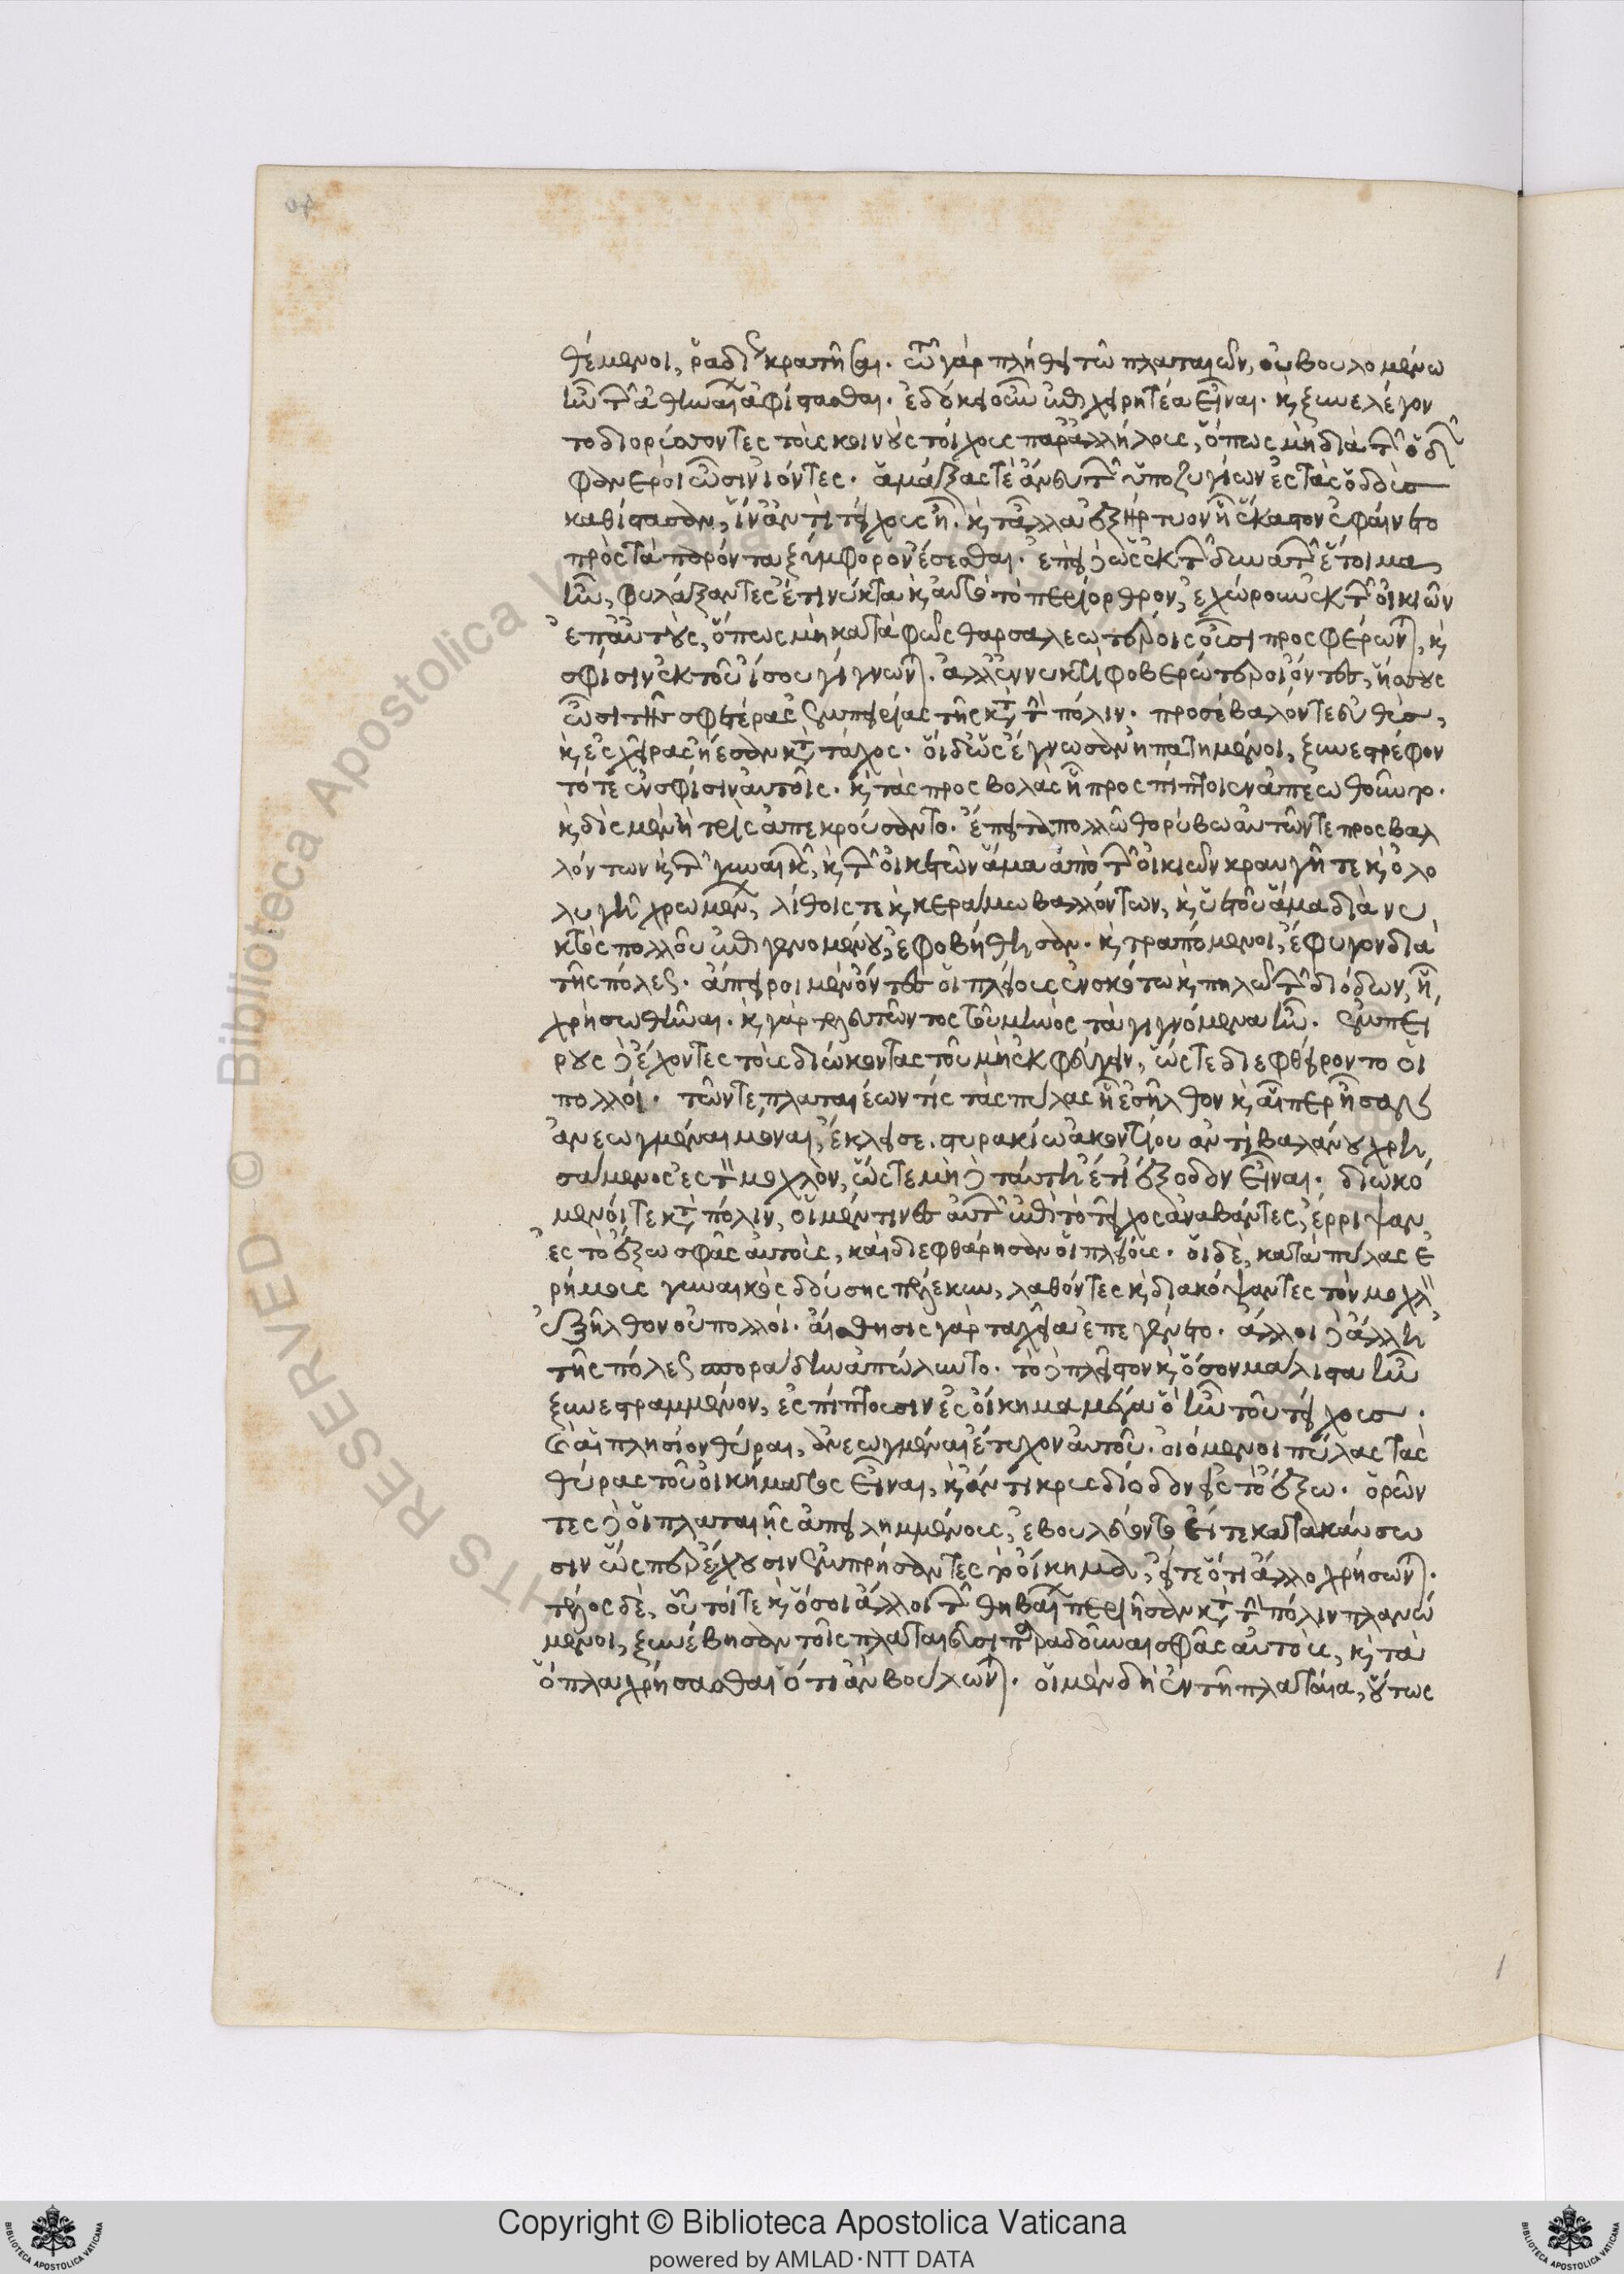 θέμενοι, ῥαδίως κρατῆσαι. τῷ γὰρ πλήθει τῶν πλαταιῶν, οὐ βουλομένω
ἦν τῶν ἀθηναίων ἀφίστασθαι. ἐδόκει οὖν ἐπιχειρητέα εἶναι. καὶ ξυνελέγον
το διορύσσοντες τοὺς κοινοὺς τοίχους παρ' ἀλλήλους, ὅπως μὴ διὰ τῶν ὁδῶν
φανεροὶ ὦσιν ἰόντες. ἁμάξας τὲ ἄνευ τῶν ὑποζυγίων ἐς τὰς ὁδοὺς
καθίστασαν, ἵν' ἀντὶ τείχους ᾖ. καὶ τἆλλα ἐξήρτυον ᾗ ἕκαστον ἐφαίνετο
πρὸς τὰ παρόντα ξύμφορον ἔσεσθαι. ἐπεὶ δὲ ὡς ἐκ τῶν δυνατῶν ἕτοιμα
ἦν, φυλάξαντες ἔτι νύκτα καὶ αὐτὸ τὸ περίορθρον, ἐχώρουν ἐκ τῶν οἰκιῶν
ἐπ' αὐτοὺς, ὅπως μὴ κατὰ φῶς θαρσαλεωτέροις οὖσι προσφέρωνται, καὶ
σφίσιν ἐκ τοῦ ἴσου γίγνωνται. ἀλλ' ἐν νυκτὶ φοβερώτεροι ὄντες, ἥσσους
ὦσι τῆς σφετέρας ἐμπειρίας τῆς κατὰ τὴν πόλιν. προσέβαλόν τε εὐθὺς,
καὶ ἐς χεῖρας ᾔεσαν κατὰ τάχος. οἱ δ' ὡς ἔγνωσαν ἠπατημένοι, ξυνεστρέφον
τό τε ἐν σφίσιν αὐτοῖς. καὶ τὰς προσβολὰς ᾗ προσπίπτοιεν ἀπεωθοῦντο.
καὶ δὶς μὲν ἢ τρὶς ἀπεκρούσαντο. ἔπειτα πολλῷ θορύβω αὐτῶν τε προσβαλ
λόντων καὶ τῶν γυναικῶν, καὶ τῶν οἰκετῶν ἅμα ἀπὸ τῶν οἰκιῶν κραυγῆ τε καὶ ὀλο
λυγῆ χρωμένων, λίθοις τε καὶ κεράμω βαλλόντων, καὶ ὑετοῦ ἅμα διὰ νυ
κτὸς πολλοῦ ἐπιγενομένου, ἐφοβήθησαν. καὶ τραπόμενοι, ἔφυγον διὰ
τῆς πόλεως. ἄπειροι μὲν ὄντες οἱ πλείους ἐν σκότω καὶ πηλῷ τῶν διόδων, ᾗ
χρὴ σωθῆναι. καὶ γὰρ τελευτῶντος τοῦ μηνὸς τὰ γιγνόμενα ἦν. ἐμπεί
ρους δὲ ἔχοντες τοὺς διώκοντας τοῦ μὴ ἐκφεύγειν, ὥστε διεφθείροντο οἱ
πολλοί. τῶν τε πλαταιέων τίς τὰς πύλας ᾗ ἐσῆλθον καὶ αἵπερ ἦσαν
ἀνεωγμέναι μόναι, ἔκλεισε. στυρακίω ἀκοντίου ἀντὶ βαλάνου χρη
σάμενος ἐς τὸν μοχλὸν, ὥστε μὴ δὲ ταύτη ἔτι ἔξοδον εἶναι. διωκό
μενοί τε κατὰ πόλιν, οἱ μέν τινες αὐτῶν ἐπὶ τὸ τεῖχος ἀναβάντες, ἔρριψαν
ἐς τὸ ἔξω σφᾶς αὐτοὺς, καὶ διεφθάρησαν οἱ πλείους. οἱ δὲ, κατὰ πύλας ἐ
ρήμους γυναικὸς δούσης πέλεκυν, λαθόντες καὶ διακόψαντες τὸν μοχλὸν
ἐξῆλθον οὐ πολλοί. αἴσθησις γὰρ ταχεῖα ἐπεγένετο. ἄλλοι δὲ ἄλλη
τῆς πόλεως σποράδην ἀπώλλυντο. τὸ δὲ πλεῖστον καὶ ὅσον μάλιστα ἦν
ξυνεστραμμένον, ἐσπίπτουσιν ἐς οἴκημα μέγα ὃ ἦν τοῦ τείχους.
καὶ αἱ πλησίον θύραι, ἀνεωγμέναι ἔτυχον αὐτοῦ. οἰόμενοι πύλας τὰς
θύρας τοῦ οἰκήματος εἶναι, καὶ ἄντικρυς δίοδον εἰς τὸ ἔξω. ὁρῶν
τες δὲ οἱ πλαταιῆς ἀπειλημμένους, ἐβουλεύοντο εἴτε κατακαύσω
σιν ὥσπερ ἔχουσιν ἐμπρήσαντες τὸ οἴκημα, εἴτε ὅτι ἄλλο χρήσωνται.
τέλος δὲ, οὗτοί τε καὶ ὅσοι ἄλλοι τῶν θηβαίων περιῆσαν κατὰ τὴν πόλιν πλανώ
μενοι, ξυνέβησαν τοῖς πλαταιεῦσι παραδοῦναι σφᾶς αὐτοὺς, καὶ τὰ
ὅπλα χρήσασθαι ὅτι ἂν βούλωνται. οἱ μὲν δὴ ἐν τῆ πλαταία, οὕτως
Copyright © Biblioteca Apostolica Vaticana
powered by AMLAD·NTT DATA